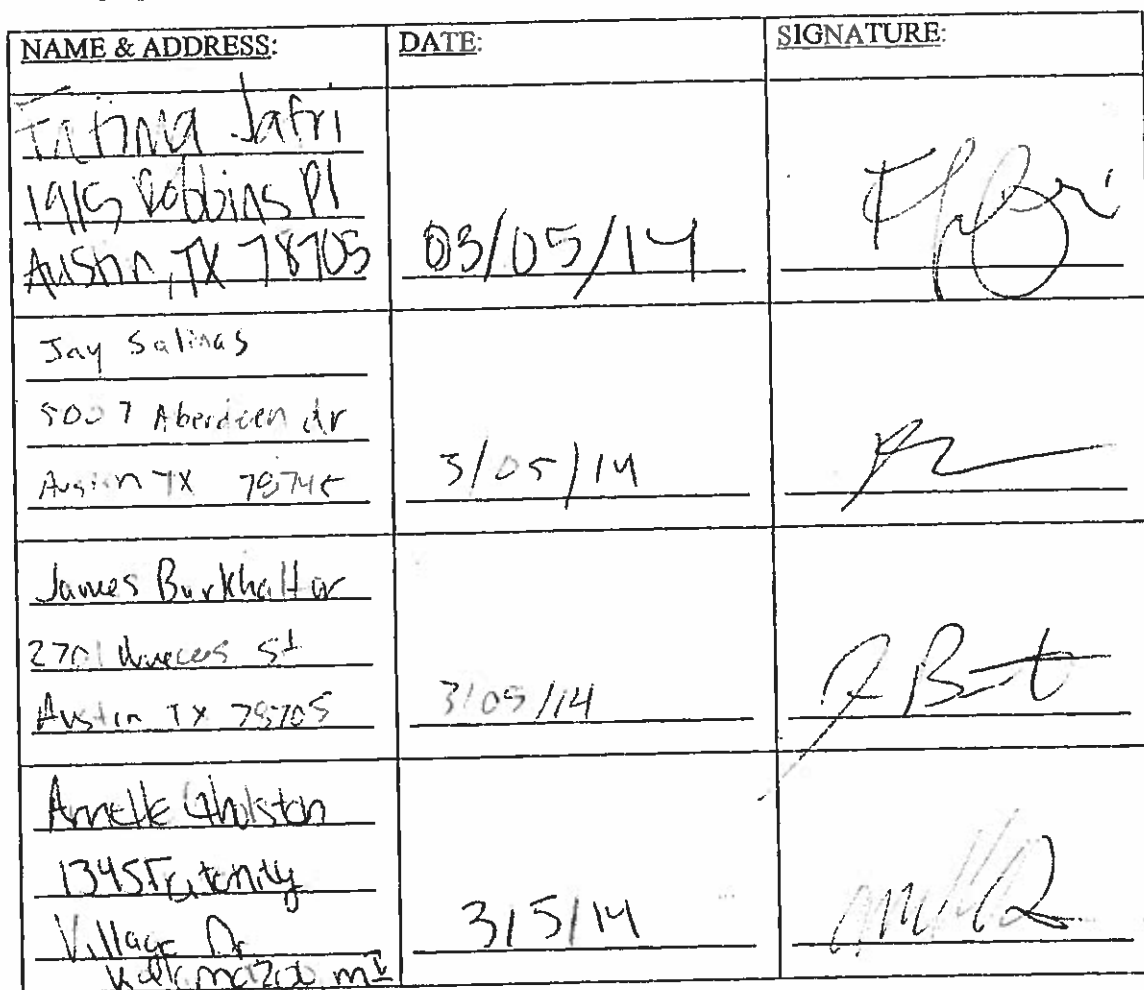 NAME & ADDRESS: DATE: SIGNATURE:
Fatima Jafri
1915 Robbins Pl
Austin, TX 78705 03/05/14
Jay Salinas
5007 Aberdeen dr
Austin TX 78745 3/05/14
James Burkhalter
2701 Nueces St
Austin TX 78705 3/05/14
Annette Gholston
1345 Fraternity
Village Dr 3/5/14
Kalamazoo MI